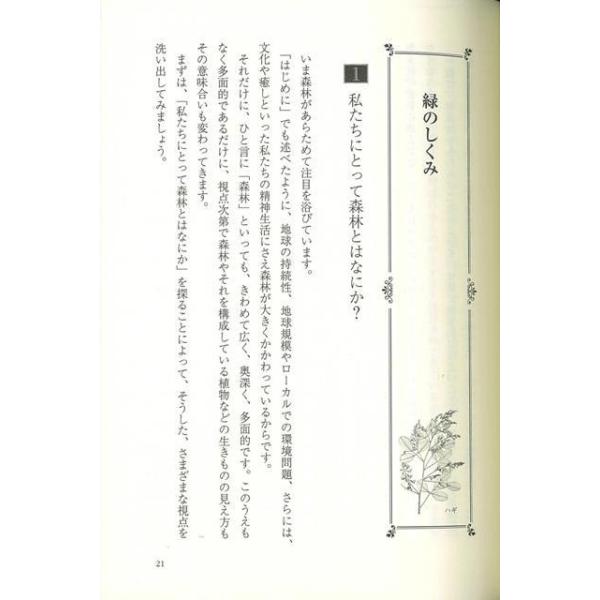 緑のしくみ
ハギ
1 私たちにとって森林とはなにか?
いま森林があらためて注目を浴びています。
「はじめに」でも述べたように、地球の持続性、地球規模やローカルでの環境問題、さらには、
文化や癒しといった私たちの精神生活にさえ森林が大きくかかわっているからです。
それだけに、ひと言に「森林」といっても、きわめて広く、奥深く、多面的です。このうえも
なく多面的であるだけに、視点次第で森林やそれを構成している植物などの生きものの見え方も
その意味合いも変わってきます。
まずは、「私たちにとって森林とはなにか」を探ることによって、そうした、さまざまな視点を
洗い出してみましょう。
21